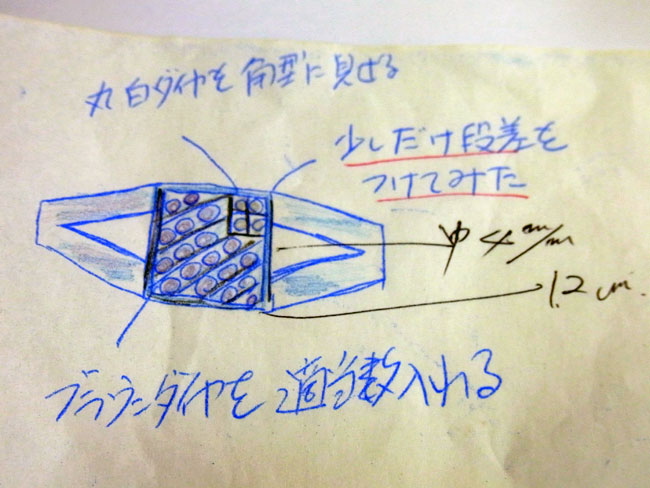 丸白ダイヤを角型に見せる
少しだけ段差を
つけてみた
巾4m/m
1.2cm.
ブラウンダイヤを適当数入れる